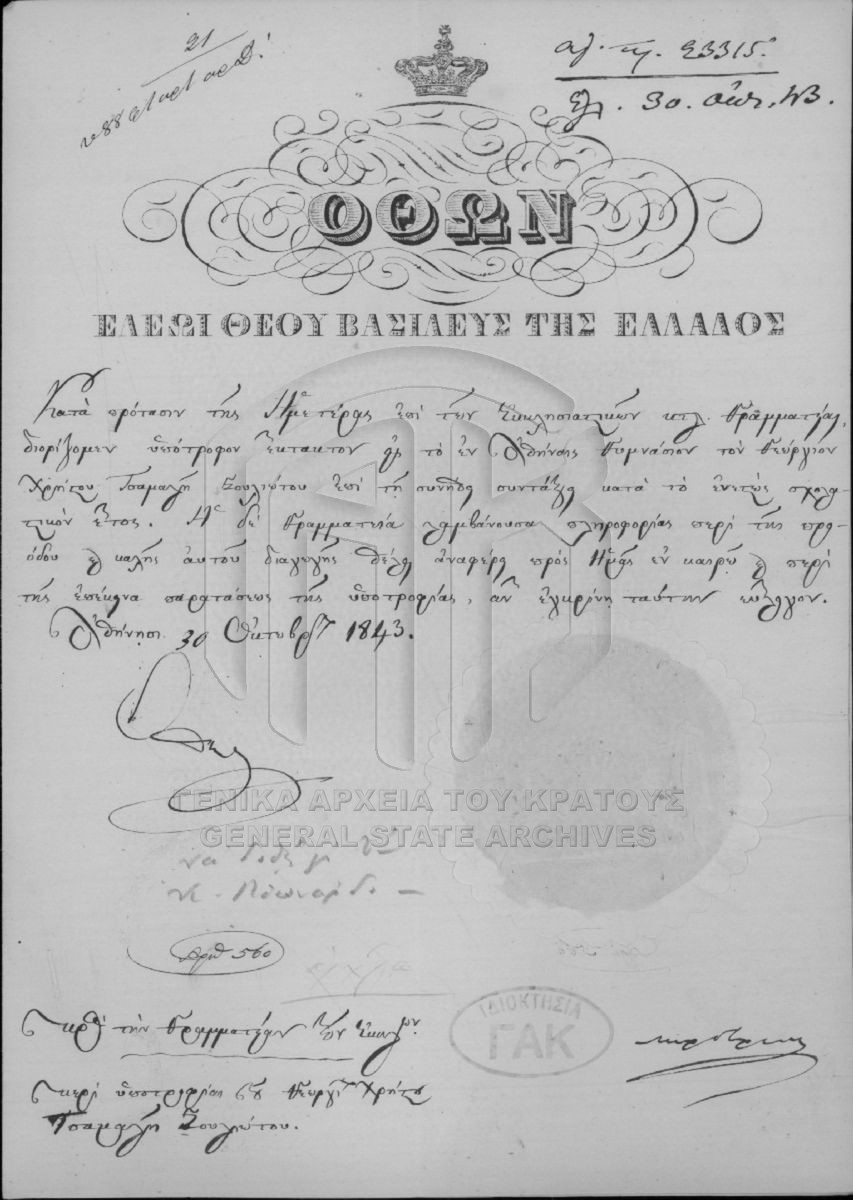 21
ἀρ. πρ. 23315.
30. Ὀκτ. 43.
ΟΘΩΝ
ΕΛΕΩΙ ΘΕΟΥ ΒΑΣΙΛΕΥΣ ΤΗΣ ΕΛΛΑΔΟΣ
Κατὰ πρότασιν τῆς Ἡμετέρας ἐπὶ τῶν Ἐκκλησιαστικῶν κτλ. Γραμματείας,
διορίζομεν ὑπότροφον ἔκτακτον εἰς τὸ ἐν Ἀθήναις Γυμνάσιον τὸν Γεώργιον
Χρήστου Τσαμαλῆ Σουλιώτου ἐπὶ τῇ συνήθει συντάξει κατὰ τὸ ἐνεστὼς σχολα
στικὸν ἔτος. Ἡ δὲ Γραμματεία λαμβάνουσα πληροφορίας περὶ τῆς προ
όδου καὶ καλῆς αὐτοῦ διαγωγῆς θέλει ἀναφέρει πρὸς Ἡμᾶς ἐν καιρῷ καὶ περὶ
τῆς ἐπέκεινα παρατάσεως τῆς ὑποτροφίας, ἂν ἐγκρίνῃ ταύτην εὔλογον.
Ἀθήνησι 30 Ὀκτωβρίου 1843.
ΓΕΝΙΚΑ ΑΡΧΕΙΑ ΤΟΥ ΚΡΑΤΟΥΣ
GENERAL STATE ARCHIVES
ἀριθ 560
ΙΔΙΟΚΤΗΣΙΑ
ΓΑΚ
τὴν Γραμματείαν τῶν Ἐκκλησ
περὶ ὑποτροφίας τοῦ Γεωργίου Χρήστου
Τσαμαλῆ Σουλιώτου.